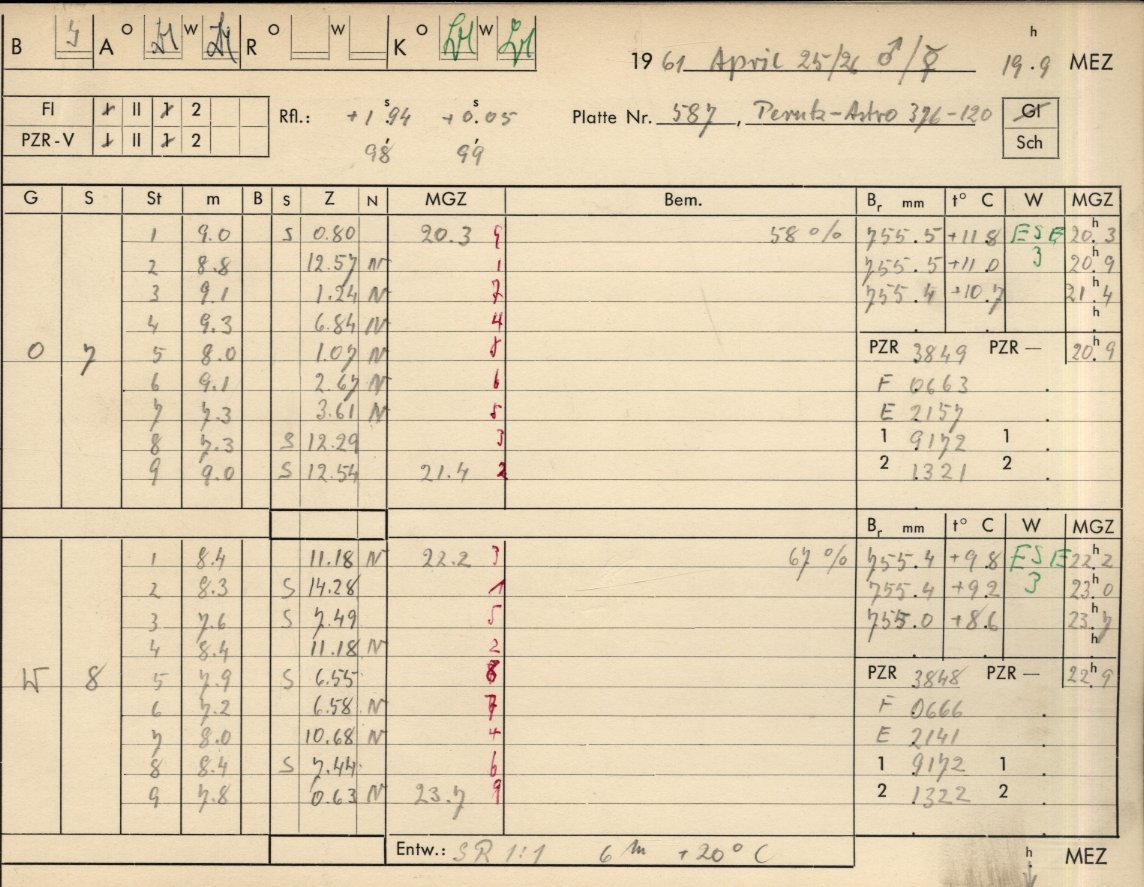 B A O W R O W K O W 19 61 April 25/26 ♂/☿ 19.9 h MEZ
FI 1 II 1 2 Rfl.: +1.94 s +0.05 s Platte Nr. 587, Perutz-Astro 376-120 Gl
PZR-V 1 II 1 2 98 99 Sch
G S St m B S Z N MGZ Bem. Br mm t° C W MGZ
1 9.0 S 0.80 20.3 9 58 % 755.5 +11.8 ESE 20.3 h
2 8.8 12.57 N 1 755.5 +11.0 3 20.9 h
3 9.1 1.24 N 7 755.4 +10.7 21.4 h
4 9.3 6.84 N 4 h
O 7 5 8.0 1.07 N 8 PZR 3849 PZR — 20.9 h
6 9.1 2.67 N 6 F 0663
7 7.3 3.61 N 5 E 2157
8 7.3 S 12.29 3 1 9172 1
9 9.0 S 12.54 21.4 2 2 1321 2
Br mm t° C W MGZ
1 8.4 11.18 N 22.2 3 67 % 755.4 +9.8 ESE 22.2 h
2 8.3 S 14.28 1 755.4 +9.2 3 23.0 h
3 7.6 S 7.49 5 755.0 +8.6 23.7 h
4 8.4 11.18 N 2 h
W 8 5 7.9 S 6.55 8 PZR 3848 PZR — 22.9 h
6 7.2 6.58 N 7 F 0666
7 8.0 10.68 N 4 E 2141
8 8.4 S 7.44 6 1 9172 1
9 7.8 0.63 N 23.7 9 2 1322 2
Entw.: SR 1:1 6 m +20° C h MEZ